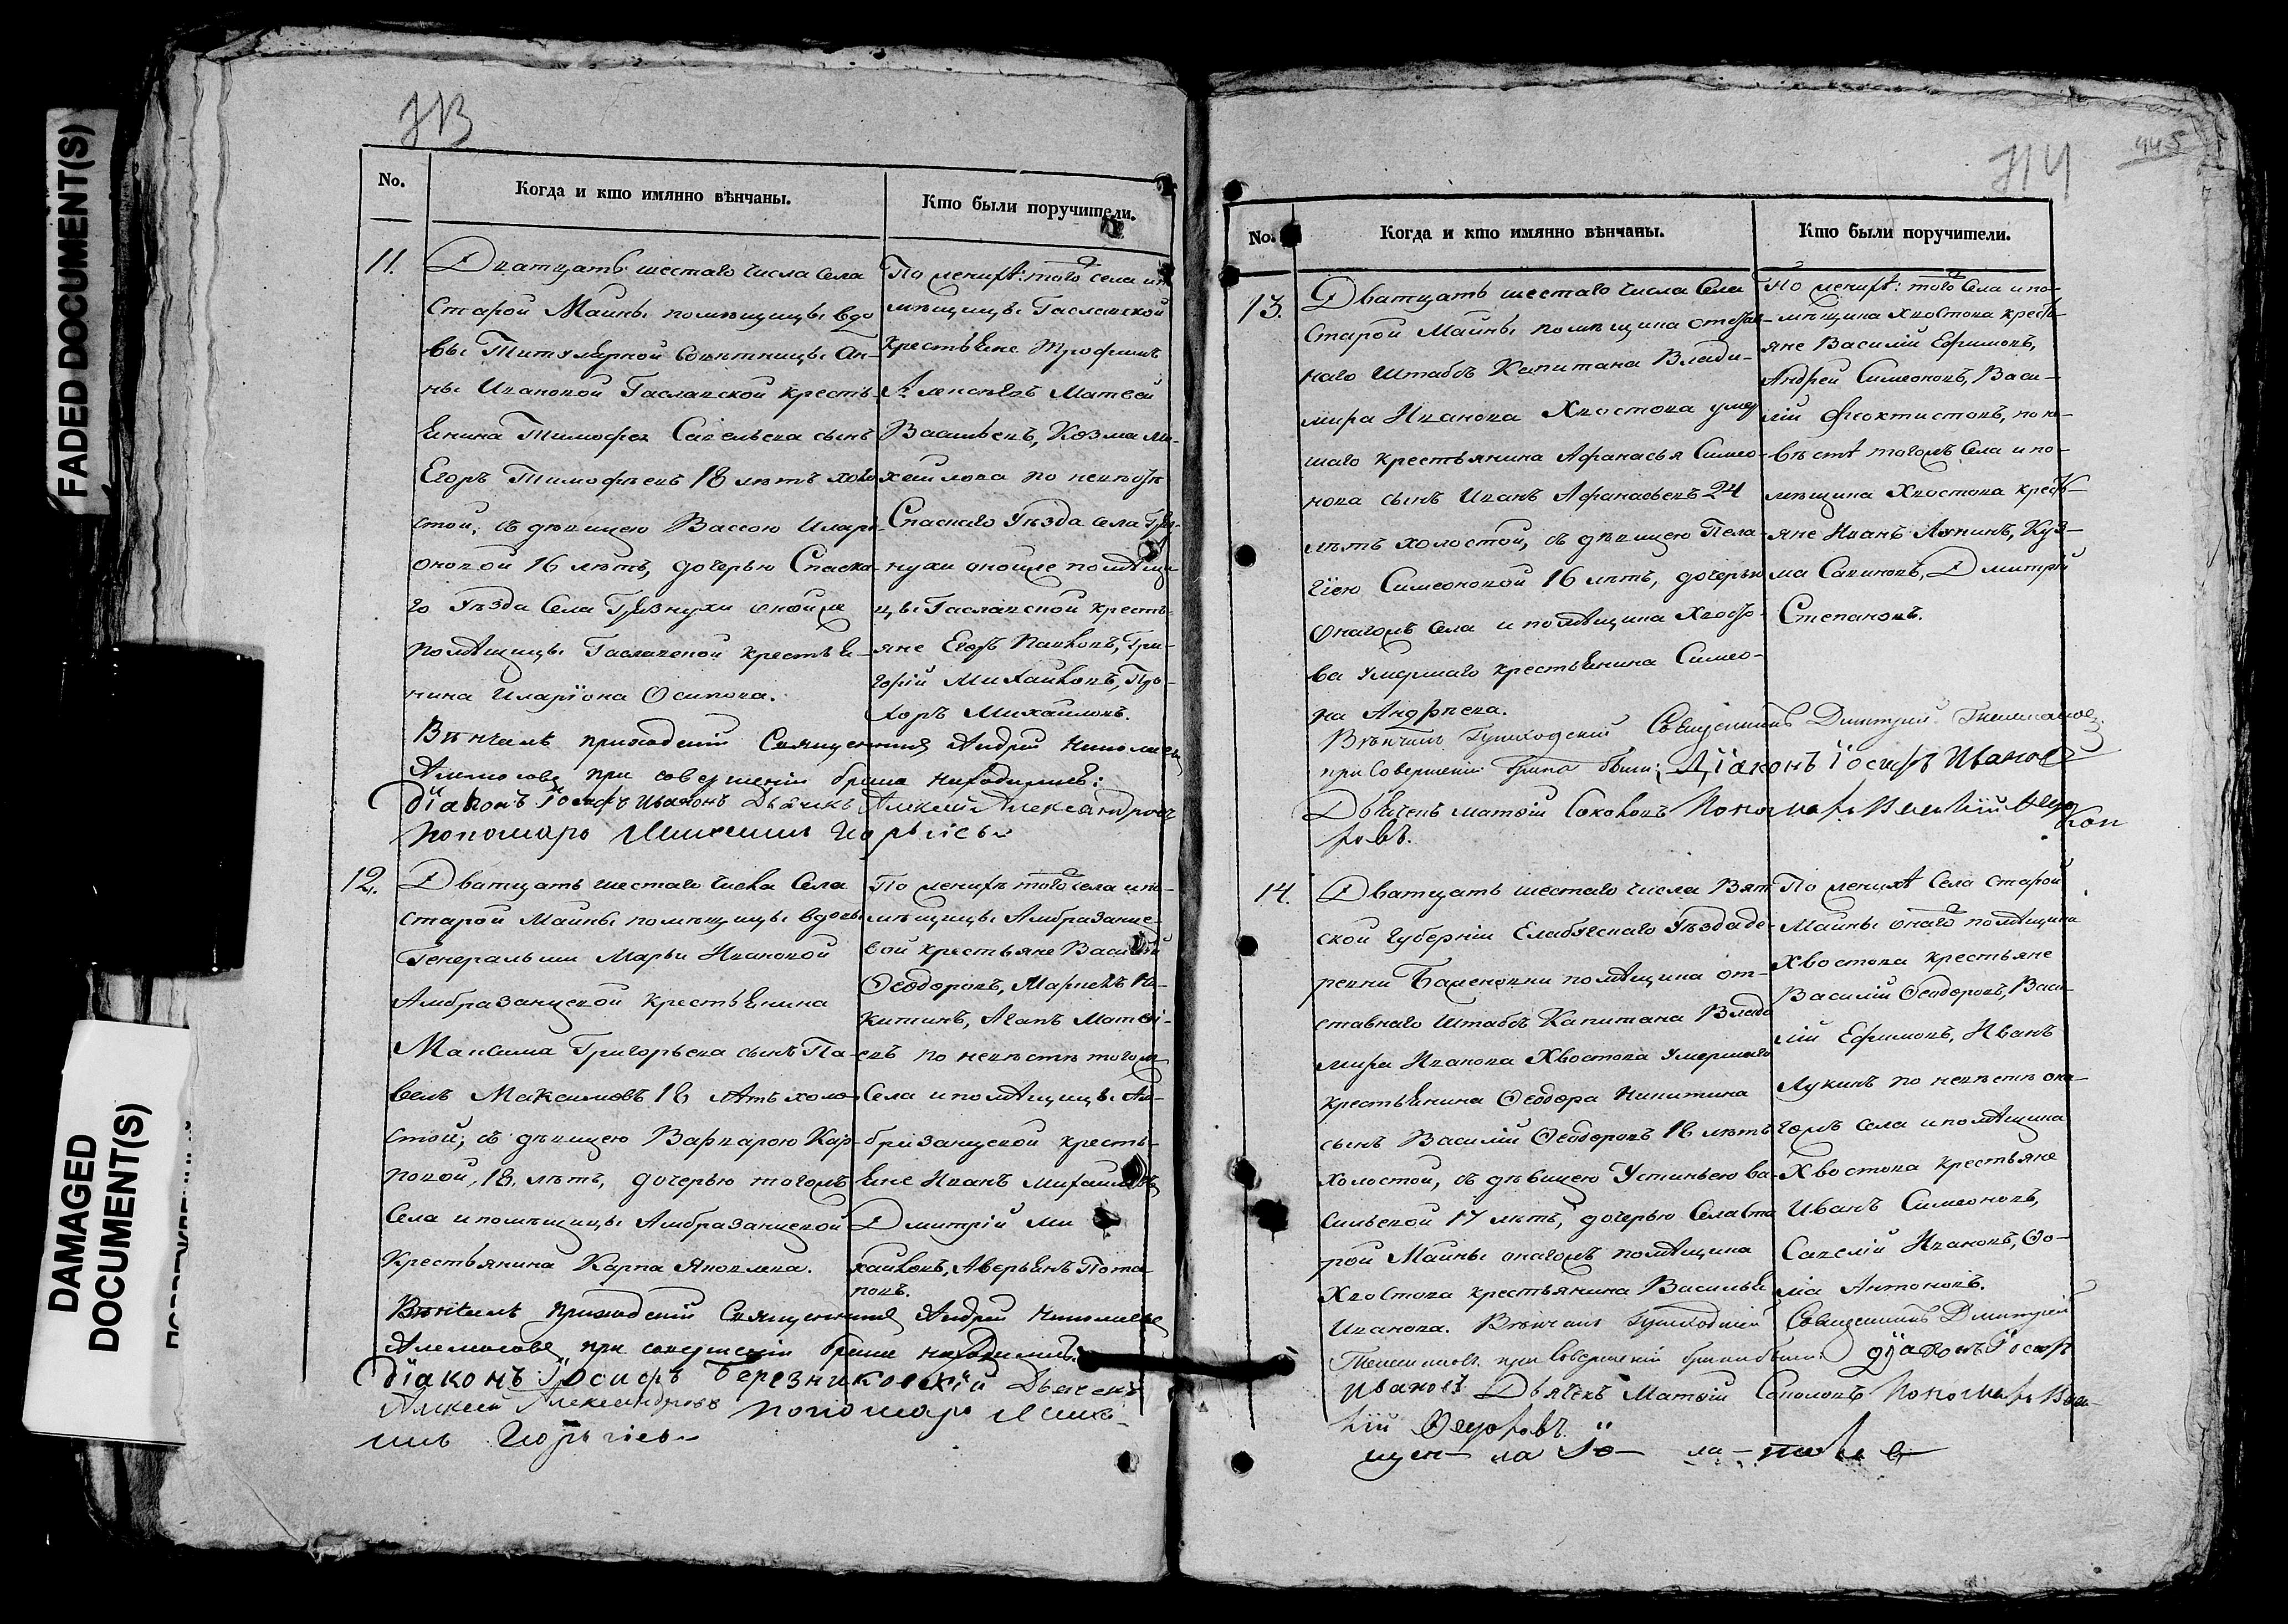 FADED DOCUMENT(S)
DAMAGED
DOCUMENT(S)
445
No.
Когда и кто имянно вѣнчаны.
Кто были поручители.
11.
Дватцать шестаго числа Села
Старой Майны помѣщицы вдо
вы Титулярной Совѣтницы Ан-
ны Ивановой Гаславской кресть
янина Тимофея Савельева сынъ
Егоръ Тимофѣевъ 18 лѣтъ холо
стой, съ дѣвицею Вассою Илари-
оновой 16 лѣтъ, дочерью Спаска-
го Уѣзда Села Грязнухи оной же
помѣщицы Гаславской крестья-
нина Иларіона Осипова.
По женихѣ: того села и по
мѣщицы Гаславской
крестьяне Трофимъ
Алексѣевъ Матвей
Васильевъ, Козма Ми-
хайлова по невѣстѣ
Спаскаго Уѣзда села Гряз-
нухи оной же помѣщи
цы Гаславской кресть-
яне Егоръ Павловъ, Гри-
горій Михайловъ, Про-
хоръ Михайловъ.
Вѣнчалъ приходскій Священникъ Андрей Николаевъ
при совершеніи брака находились:
Діаконъ Іосифъ Ивановъ Дьячекъ Алексей Александровъ
Пономарь
12.
Дватцать шестаго числа Села
Старой Майны помѣщицы вдовы
Генеральши Марьи Ивановой
Амбразанцевой крестьянина
Максима Григорьева сынъ Па-
велъ Максимовъ 18 лѣтъ холо-
стой, съ дѣвицею Варварою Кар-
повой, 18, лѣтъ, дочерью тогожъ
Села и помѣщицы Амбразанцевой
Крестьянина Карпа Яковлева.
По женихѣ того села и по-
мѣщицы Амбразанце-
вой крестьяне Василій
Ѳеодоровъ, Маркелъ Ни-
китинъ, Агапъ Матвѣ-
евъ по невѣстѣ тогожъ
Села и помѣщицы Ам-
бразанцевой кресть-
яне Иванъ Михайловъ
Дмитрій Ми
хайловъ, Аверьянъ Пота
повъ.
Вѣнчалъ приходскій Священникъ Андрей Николаевъ
при совершеніи брака находились:
Діаконъ Іосифъ Березниковскій Дьячекъ
Алексей Александровъ Пономарь
No.
Когда и кто имянно вѣнчаны.
Кто были поручители.
13.
Дватцать шестаго числа Села
Старой Майны помѣщика отстав-
наго Штабсъ Капитана Влади-
мира Иванова Хвостова умер
шаго крестьянина Афанасья Симео-
нова сынъ Иванъ Афанасьевъ 24
лѣтъ холостой, съ дѣвицею Пела-
гіею Симеоновой 16 лѣтъ, дочерью
онагожъ Села и помѣщика Хвосто-
ва умершаго крестьянина Симео-
на Андрѣева.
По женихѣ: того Села и по-
мѣщика Хвостова кресть-
яне Василій Ефимовъ,
Андрей Симеоновъ, Васи-
лій Феоктистовъ, по не-
вѣстѣ тогожъ Села и по-
мѣщика Хвостова кресть-
яне Иванъ Лукинъ, Куз-
ма Савиновъ, Дмитрій
Степановъ.
Вѣнчалъ Приходской Священникъ Димитрій
при Совершеніи брака были: Діаконъ Іосифъ Ивановъ
Дьячекъ Матвій Соколовъ Пономарь Василій Ѳедо
ровъ.
14.
Дватцать шестаго числа Вят
ской Губерніи Елабужскаго Уѣзда де-
ревни помѣщика от-
ставнаго Штабсъ Капитана Влади
мира Иванова Хвостова умершаго
крестьянина Ѳеодора Никитина
сынъ Василій Ѳеодоровъ 18 лѣтъ
холостой, съ дѣвицею Устиньею Ва-
сильевой 17 лѣтъ, дочерью Села Ста
рой Майны онагожъ помѣщика
Хвостова крестьянина Василья
Иванова.
По женихѣ Села Старой
Майны онаго помѣщика
Хвостова крестьяне
Василій Ѳеодоровъ, Васи-
лій Ефимовъ, Иванъ
Лукинъ по невѣстѣ она-
гожъ села и помѣщика
Хвостова крестьяне
Иванъ Симеоновъ,
Савелій Ивановъ, Ѳо-
ма Антоновъ.
Вѣнчалъ Приходскій Священникъ Димитрій
при Совершеніи брака были Діаконъ Іосифъ
Ивановъ Дьячекъ Матвій Соколовъ Пономарь Васи-
лій Ѳедоровъ